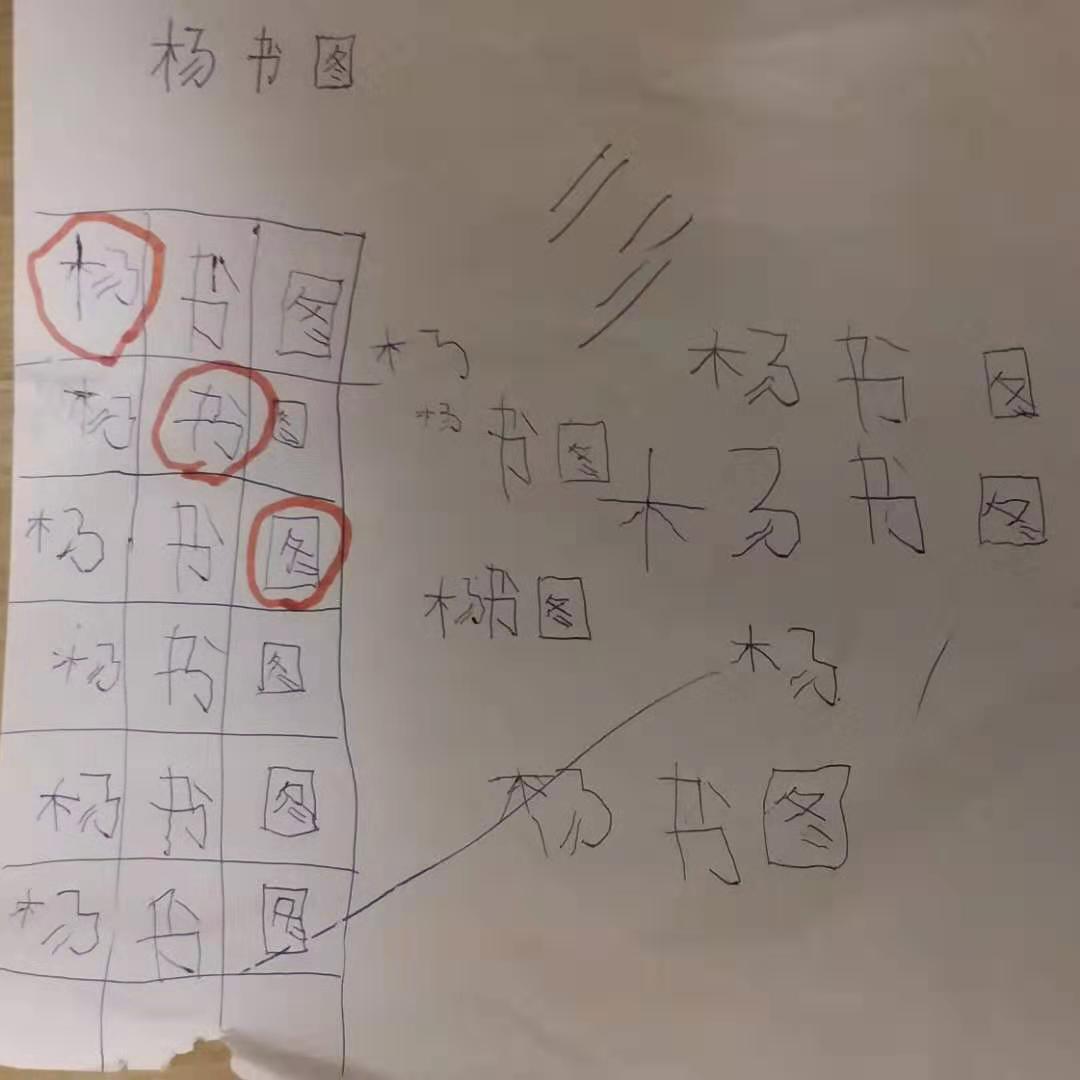 杨书图
杨书图
杨书图
杨书图
杨书图
杨书图
杨书图
杨
杨书图
杨书图
杨书图
杨书图
杨
杨书图